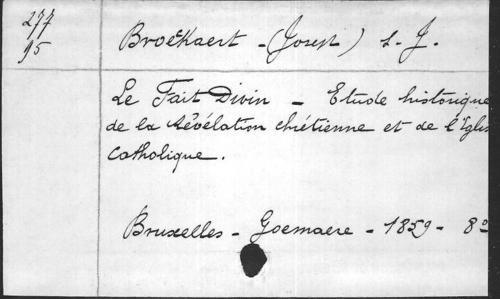 277
95
Broeckaert - (Joseph) S. J.
Le Fait Divin - Etude historique
de la Révélation chrétienne et de l'Eglise
catholique.
Bruxelles - Goemaere - 1859 - 8°